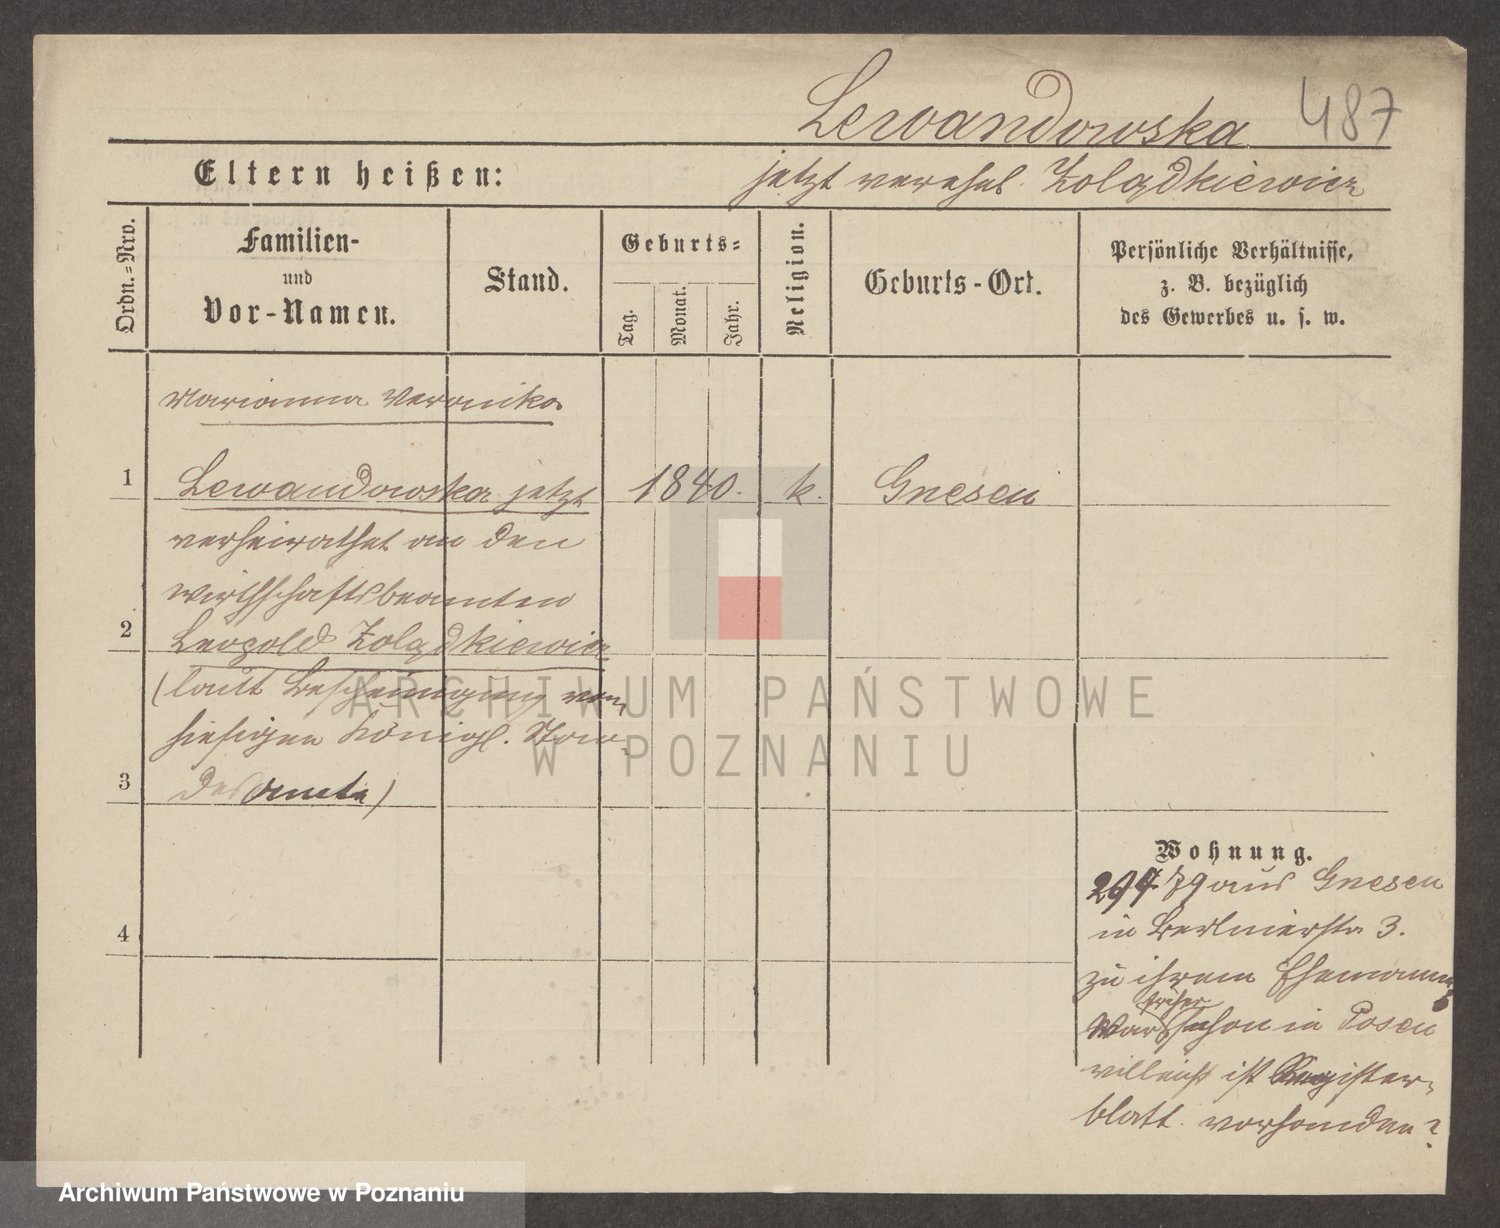 Lewandowska 487
Eltern heißen: jetzt verehel. Żolądkiewicz
Ordn.=Nro.
Familien-
und
Vor-Namen.
Stand.
Geburts=
Tag.
Monat.
Jahr.
Religion.
Geburts-Ort.
Persönliche Verhältnisse,
z. B. bezüglich
des Gewerbes u. s. w.
Marianna Veronika
1 Lewandowska jetzt 1840. k. Gnesen
verheirathet an den
Wirthschaftsbeamten
2 Leopold Żolądkiewicz
(laut Bescheinigung vom
hiesigen Königl. Stan-
3 desamte)
4
Wohnung.
29/4 79 aus Gnesen
in Berlinerstr 3.
zu ihrem Ehemann
früher
War schon in Posen
villeicht ist Register-
blatt vorhanden?
ARCHIWUM PAŃSTWOWE
W POZNANIU
Archiwum Państwowe w Poznaniu